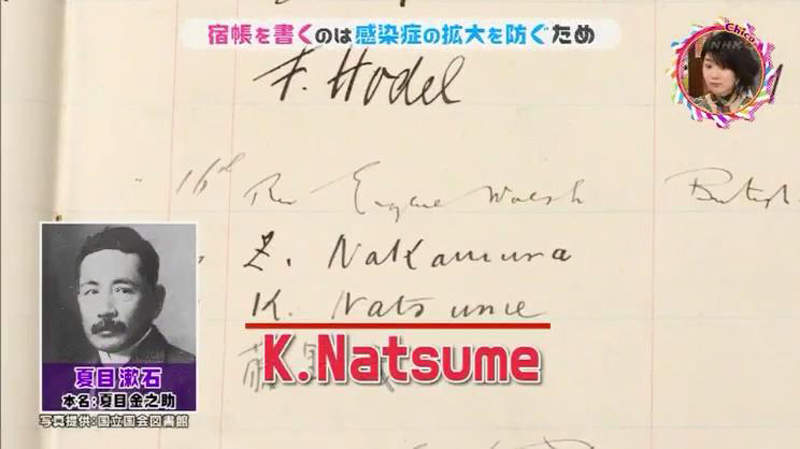 宿帳を書くのは感染症の拡大を防ぐため
Chico
NHK
F. Hodel
16th Rev Eugene Walsh British
Z. Nakamura
K. Natsume
K.Natsume
夏目漱石
本名:夏目金之助
写真提供:国立国会図書館